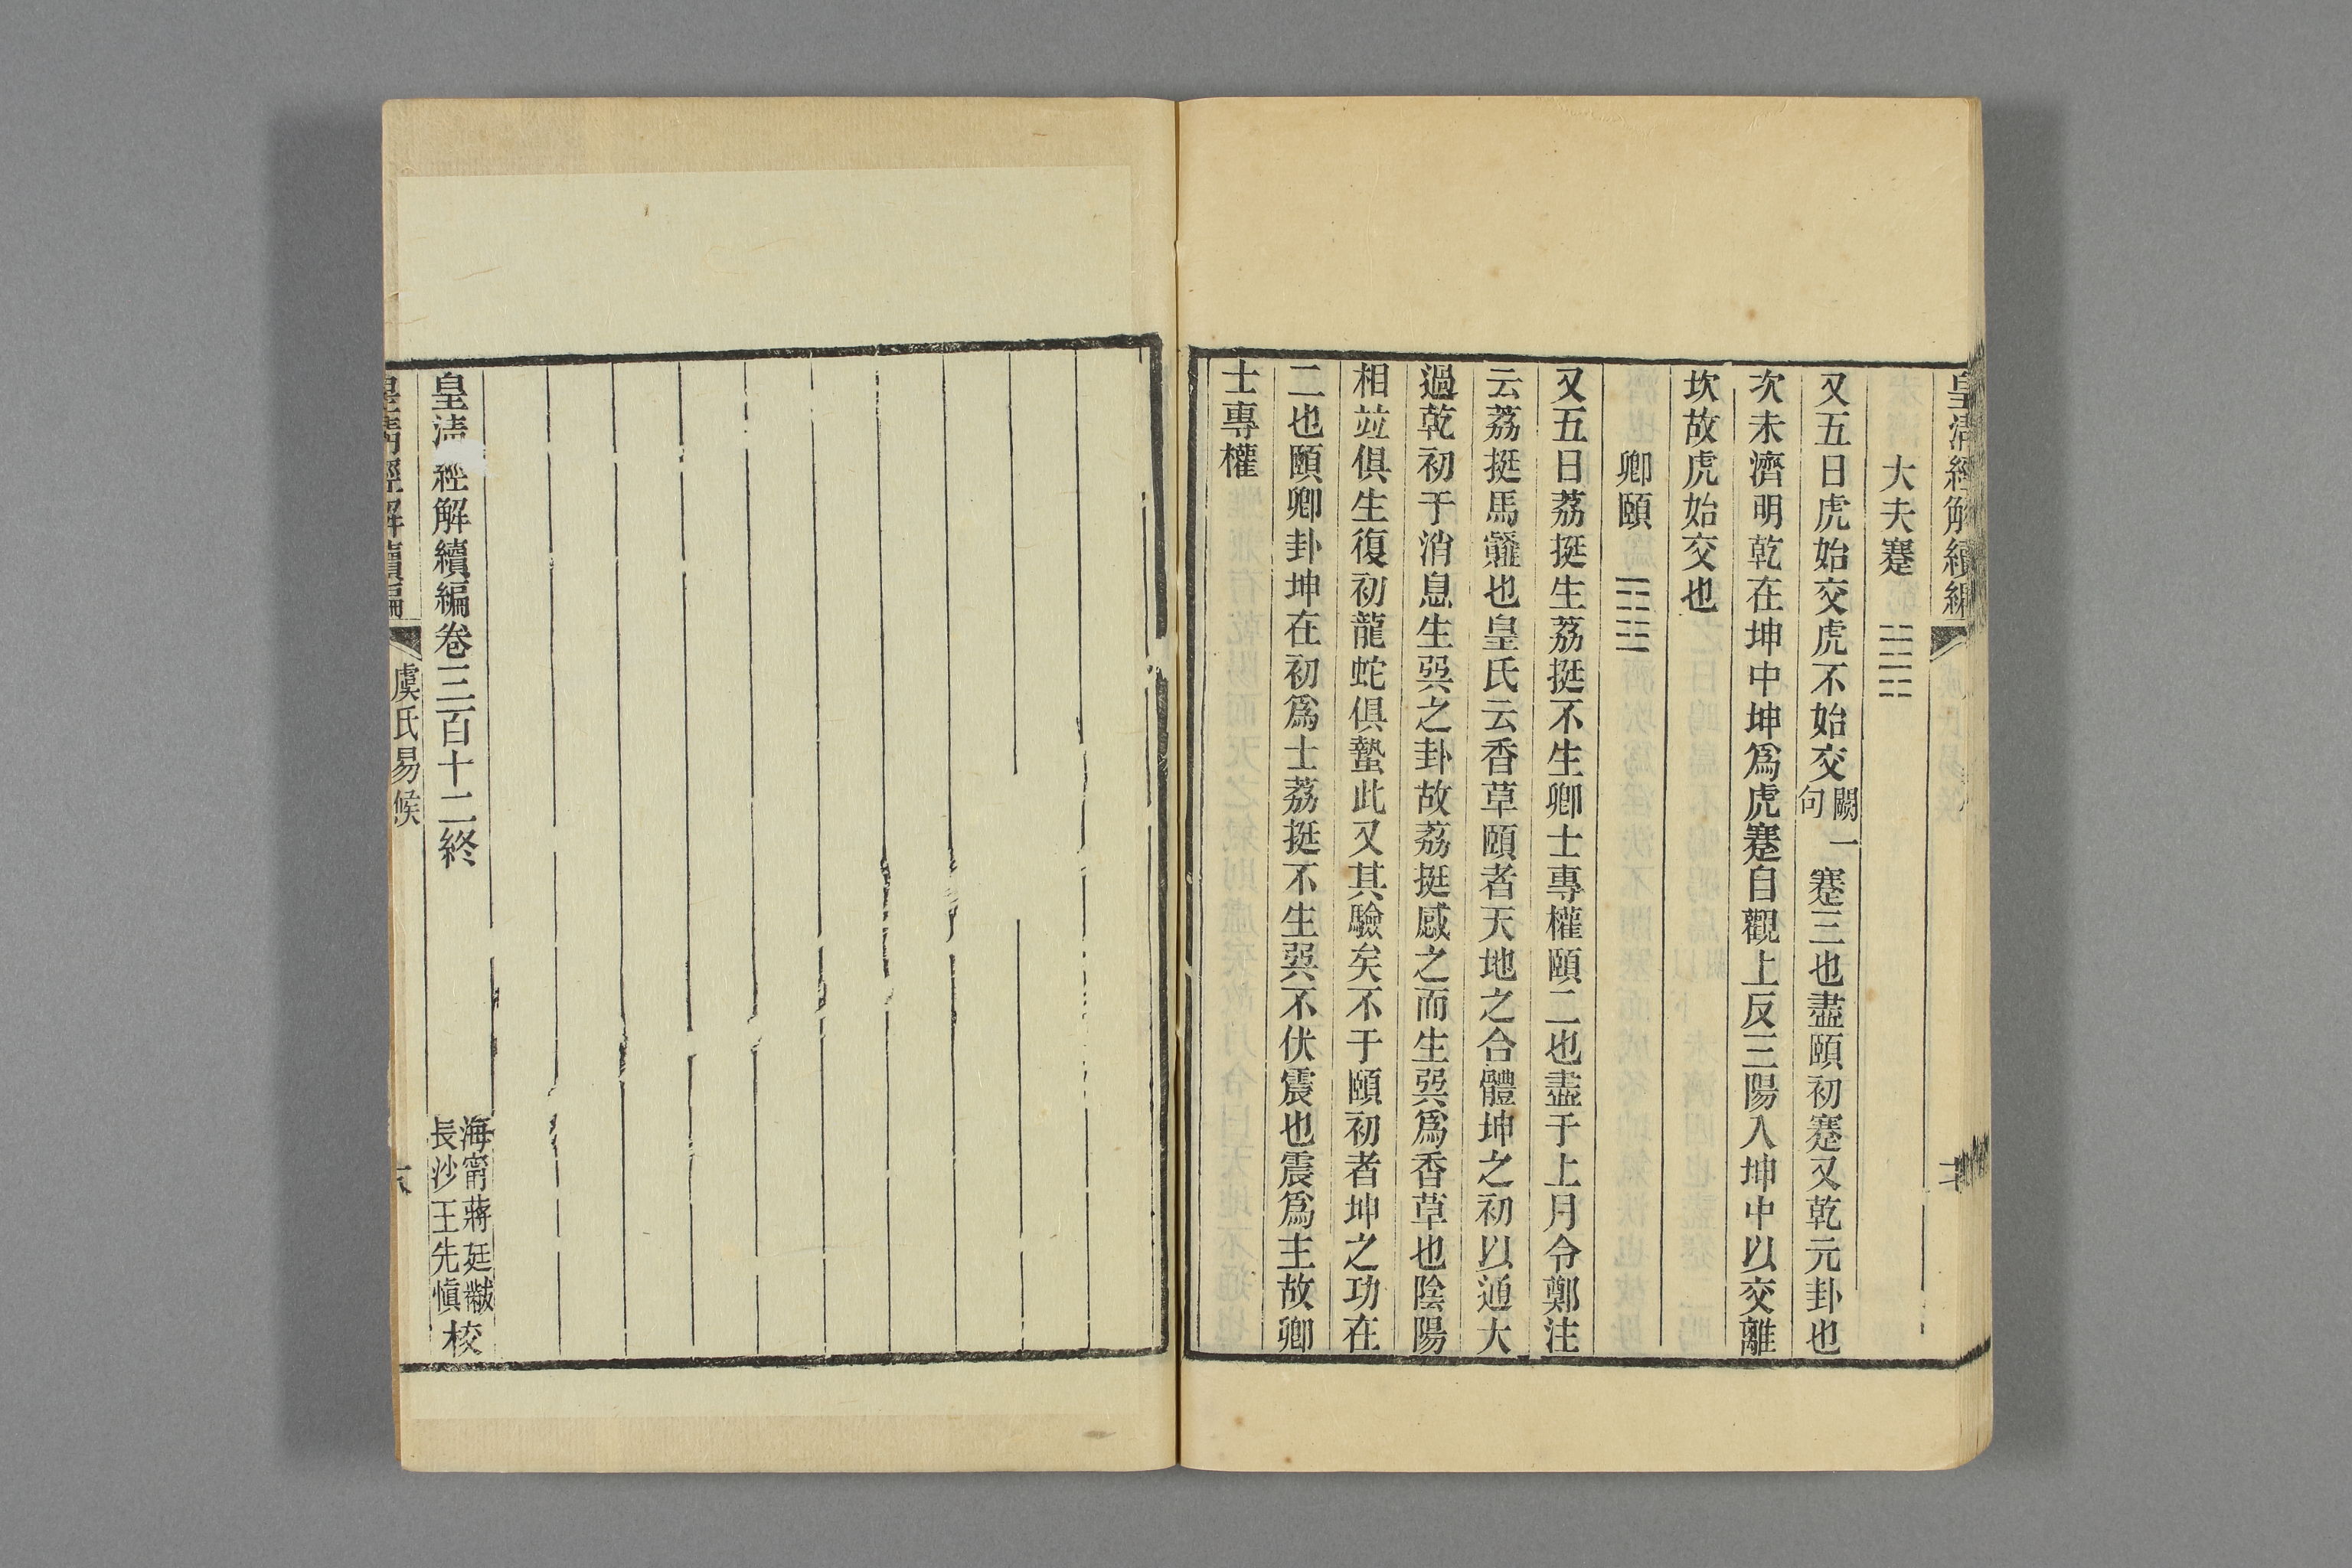 皇清經解續編
大夫蹇
又五日虎始交虎不始交闕句一蹇三也盡頤初蹇又乾元卦也
次未濟明乾在坤中坤爲虎蹇自觀上反三陽入坤中以交離
坎故虎始交也
卿頤
又五日荔挺生荔挺不生卿士專權頤二也盡于上月令鄭注
云荔挺馬䪥也皇氏云香草頤者天地之合體坤之初以通大
過乾初于消息生巽之卦故荔挺感之而生巽爲香草也陰陽
相竝俱生復初龍蛇俱蟄此又其驗矣不于頤初者坤之功在
二也頤卿卦坤在初爲士荔挺不生巽不伏震也震爲主故卿
士專權
皇清經解續編卷三百十二終
海甯蔣廷黻
長沙王先慎
校
皇清經解續編
虞氏易候